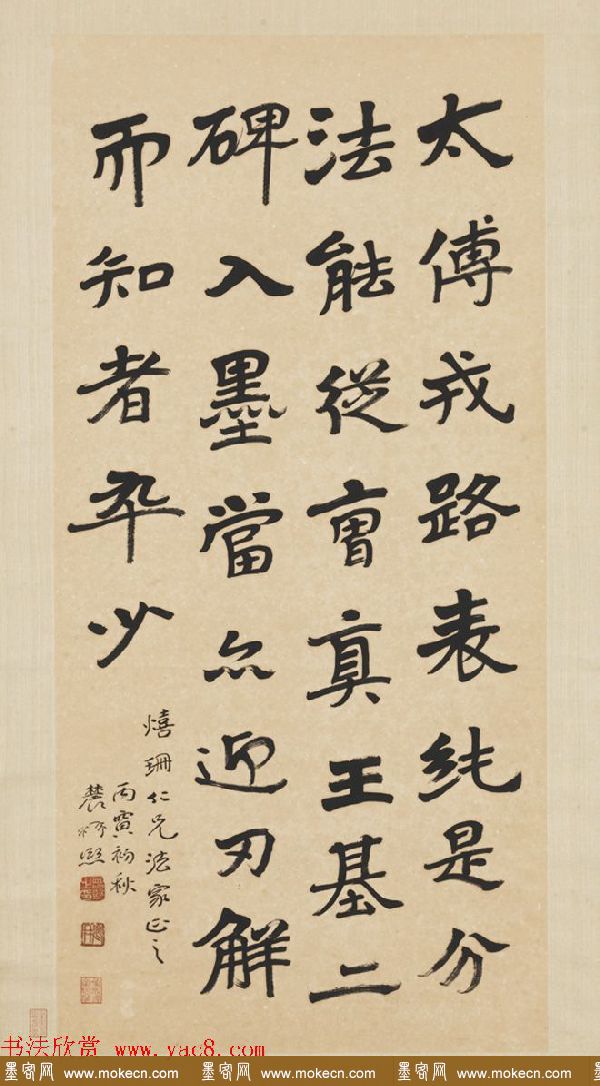 太傅戎路表純是分
法能從曹真王基二
碑入墨當亦迎刃解
而知者卒少
熺珊仁兄法家正之
丙寅初秋
農髯熙
书法欣赏 www.yac8.com
墨客网 www.mokecn.com 墨客网 www.mokecn.com 墨客网 www.mokecn.com